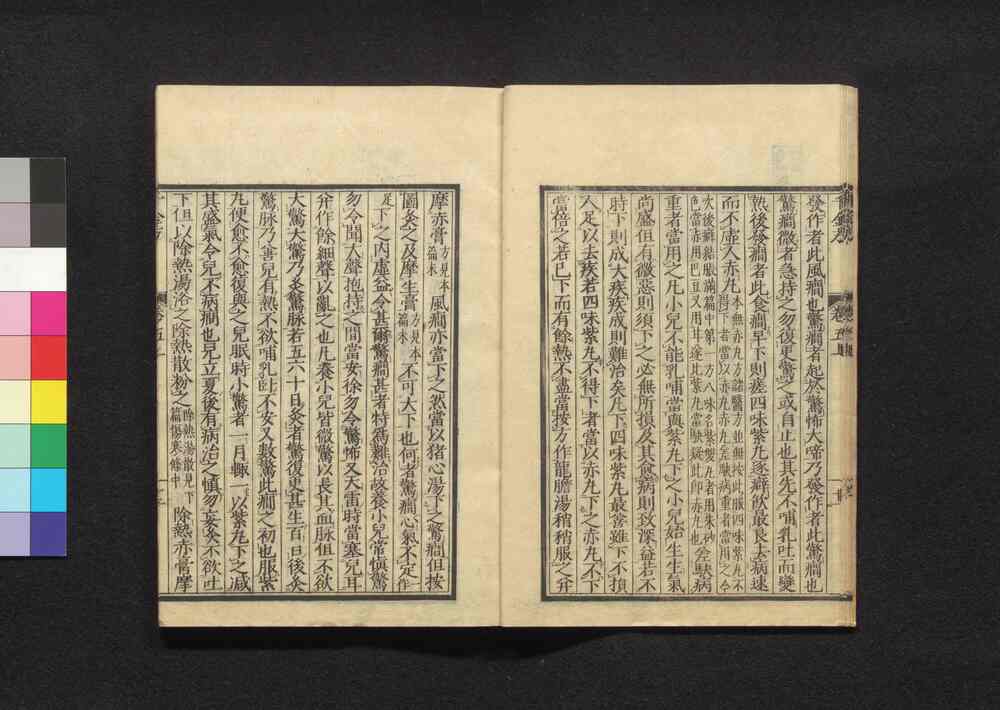 發作者此風癇也驚癇者起於驚怖大啼乃發作者此驚癇也
驚癇微者急持之勿復更驚之或自止也其先不哺乳吐而變
熱後發癇者此食癇早下則瘥四味紫丸逐癖飲最良去病速
而不虛人赤丸本無赤丸方諸醫方並無按此服四味紫丸不得下者當以赤丸赤丸差駃病重者當用之今
次後癖結脹滿篇中第一方八味名紫雙丸者用朱砂色當赤用巴豆又用甘遂比紫丸當駃疑此即赤丸也
病重者當用之凡小兒不能乳哺當與紫丸下之小兒始生生氣
尚盛但有微惡則須下之必無所損及其愈病則致深益若不
時下則成大疾疾成則難治矣凡下四味紫丸最善雖下不損
人足以去疾若四味紫丸不得下者當以赤丸下之赤丸不下
當倍之若已下而有餘熱不盡當按方作龍膽湯稍稍服之并
摩赤膏方見本篇末風癇亦當下之然當以猪心湯下之驚癇但按
圖灸之及摩生膏方見本篇末不可大下也何者驚癇心氣不定
下之內虛益令甚爾驚癇甚者特為難治故養小兒常慎驚
勿令聞大聲抱持之間當安徐勿令驚怖又天雷時當塞兒耳
并作餘細聲以亂之也凡養小兒皆微驚以長其血脉但不欲
大驚大驚乃灸驚脉若五六十日灸者驚復更甚生百日後灸
驚脉乃善兒有熱不欲哺乳臥不安又數驚此癇之初也服紫
丸便愈不愈復與之兒眠時小驚者一月輒一以紫丸下之減
其盛氣令兒不病癇也兒立夏後有病治之慎勿妄灸不欲吐
下但以除熱湯浴之除熱散粉之除熱湯散見下篇傷寒條中除熱赤膏摩